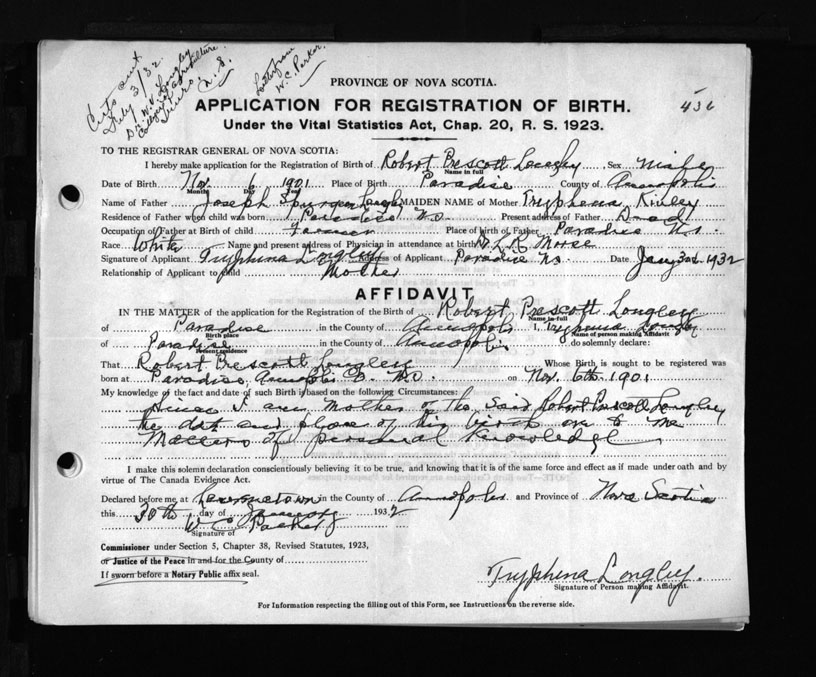 Certs sent
July 3/32
Dr W.V. Longley
College of Agriculture
Truro N.S.
W.C. Parker
436
PROVINCE OF NOVA SCOTIA.
APPLICATION FOR REGISTRATION OF BIRTH.
Under the Vital Statistics Act, Chap. 20, R. S. 1923.
TO THE REGISTRAR GENERAL OF NOVA SCOTIA:
I hereby make application for the Registration of Birth of Robert Prescott Longley Sex Male
Name in full
Date of Birth Nov. 6 1901 Place of Birth Paradise County of Annapolis
Month Day Year
Name of Father Joseph Spurgeon Longley MAIDEN NAME of Mother Tryphena Kinley
Residence of Father when child was born Paradise N.S. Present address of Father Dead
Occupation of Father at Birth of child Farmer Place of birth of Father Paradise N.S.
Race White Name and present address of Physician in attendance at birth L R Morse
Signature of Applicant Tryphina Longley Address of Applicant Paradise N.S. Date Jany 30th 1932
Relationship of Applicant to child Mother
AFFIDAVIT
IN THE MATTER of the application for the Registration of the Birth of Robert Prescott Longley
Name in full
of Paradise in the County of Annapolis I, Tryphena Longley
Birth place Name of person making Affidavit
of Paradise in the County of Annapolis do solemnly declare:
Present residence
That Robert Prescott Longley Whose Birth is sought to be registered was
born at Paradise, Annapolis Co. N.S. on Nov. 6th 1901
My knowledge of the fact and date of such Birth is based on the following Circumstances:
I am Mother of the said Robert Prescott Longley
the date and place of his birth are to me
Matters of personal knowledge
I make this solemn declaration conscientiously believing it to be true, and knowing that it is of the same force and effect as if made under oath and by
virtue of The Canada Evidence Act.
Declared before me at Lawrencetown in the County of Annapolis and Province of Nova Scotia
this 30th day of January 1932
W C Parker
Signature of
Commissioner under Section 5, Chapter 38, Revised Statutes, 1923,
or Justice of the Peace in and for the County of
If sworn before a Notary Public affix seal.
Tryphina Longley.
Signature of Person making Affidavit.
For Information respecting the filling out of this Form, see Instructions on the reverse side.